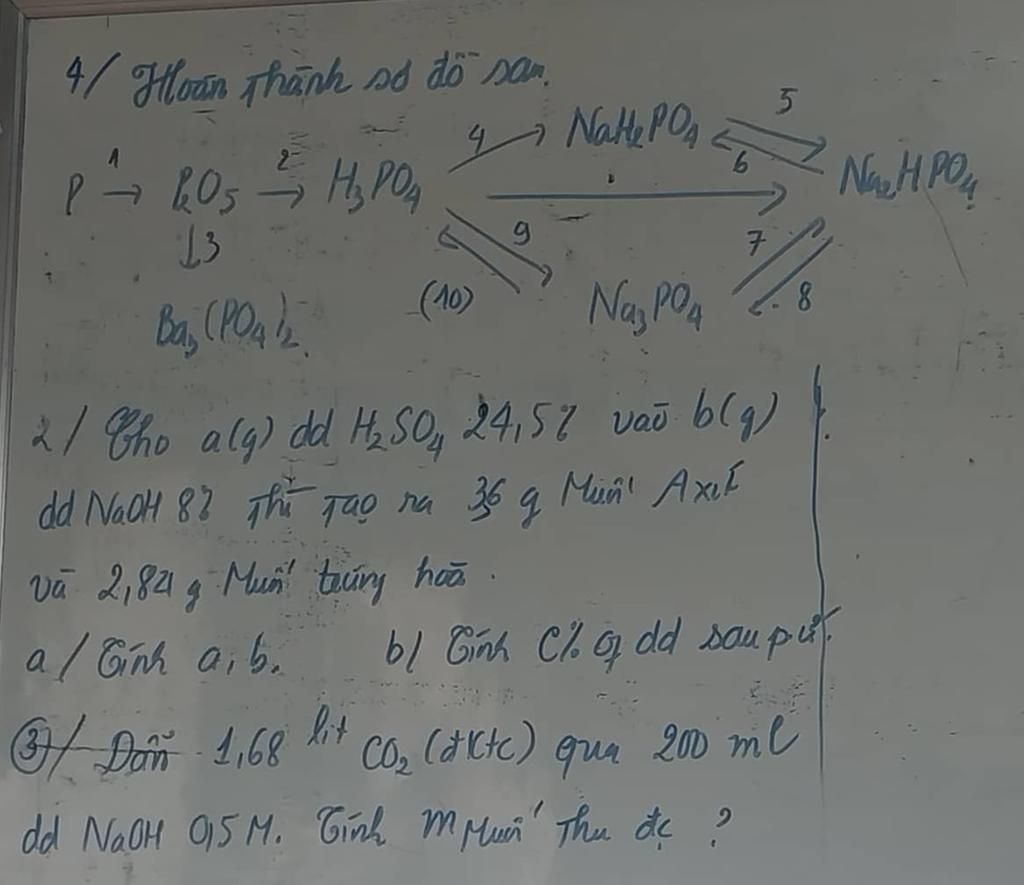 4/ Hoàn thành sơ đồ sau.
P 1→ P2O5 2→ H3PO4 4→ NaH2PO4 5 6 Na2HPO4
↓3 9 7 8
Ba3(PO4)2 (10) Na3PO4
2/ Cho a(g) dd H2SO4 24,5% vào b(g)
dd NaOH 8% thì tạo ra 3,6 g Muối Axit
và 2,84 g Muối trung hoà.
a/ Tính a, b. b/ Tính C% of dd sau pứ.
3/ Dẫn 1,68 lít CO2 (đktc) qua 200 ml
dd NaOH 0,5 M. Tính m Muối thu đc ?